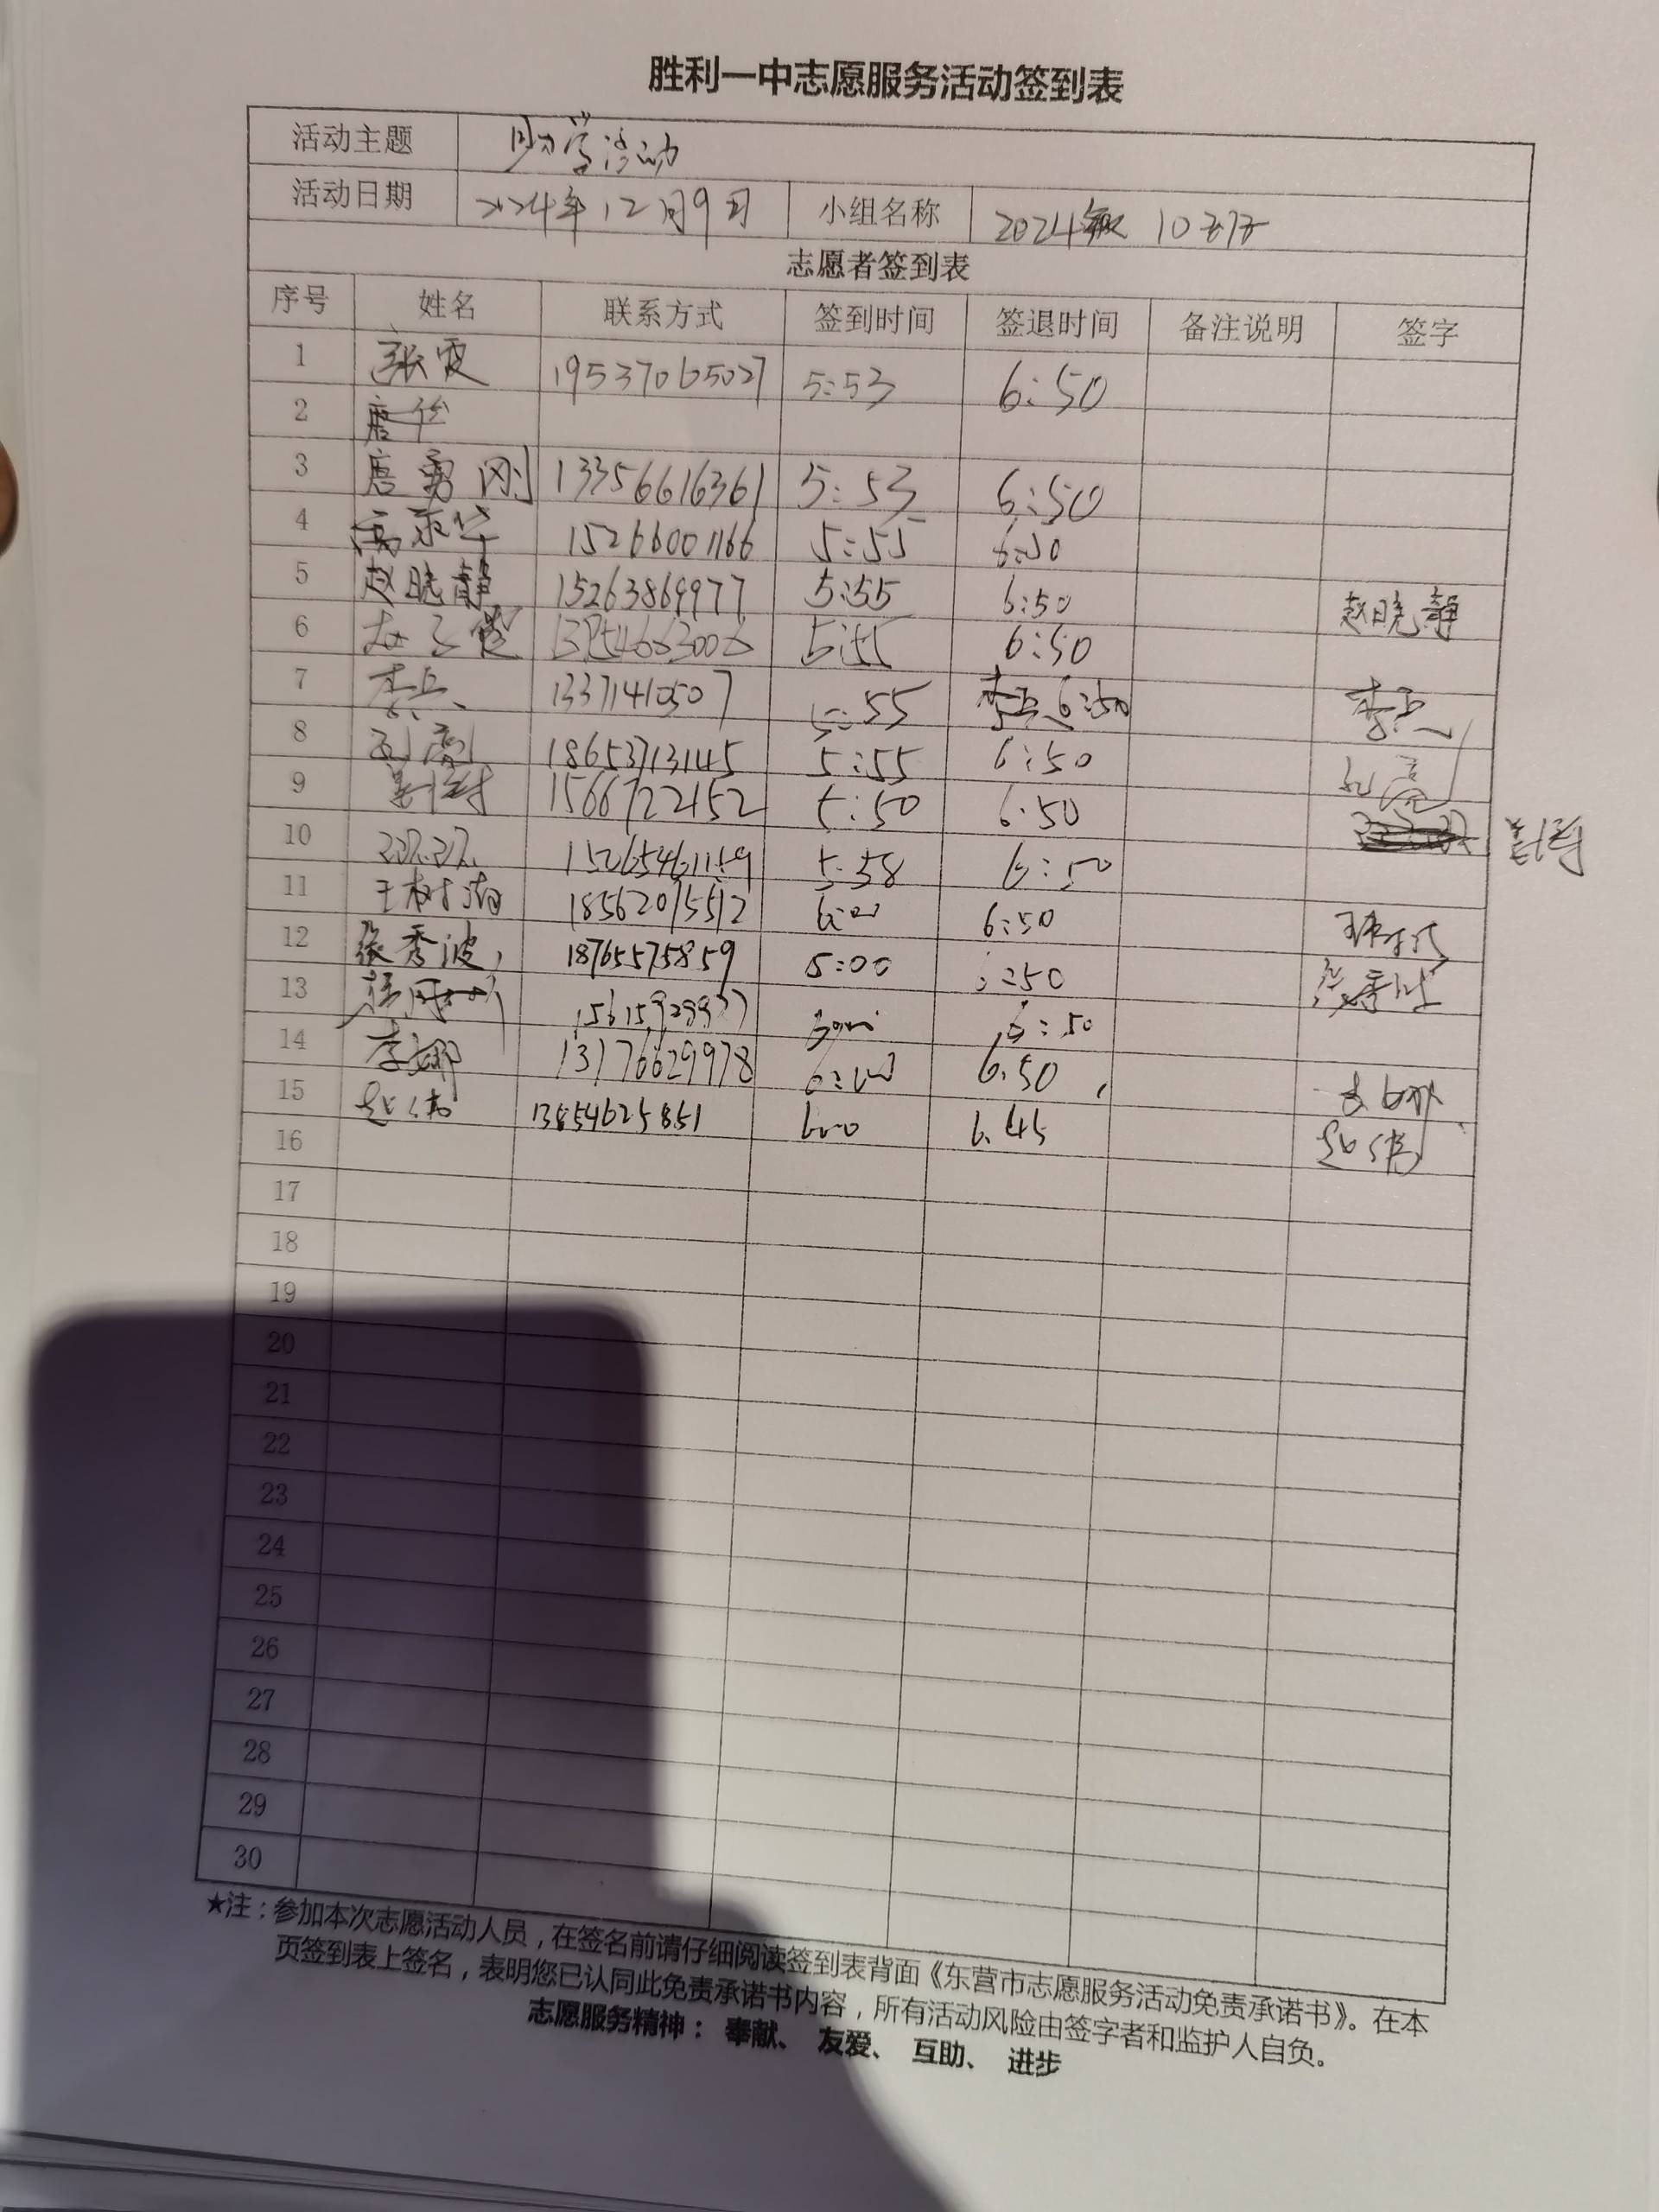 胜利一中志愿服务活动签到表
活动主题 助学活动
活动日期 2024年12月9日 小组名称 2024级10班
志愿者签到表
序号 姓名 联系方式 签到时间 签退时间 备注说明 签字
1 张霞 19537065027 5:53 6:50
2
3 唐勇刚 13356616361 5:53 6:50
4 15266001166 5:55 6:50
5 赵晓静 15263869977 5:55 6:50 赵晓静
6 5:55 6:50
7 李兵 13371410507 5:55 李兵 6:50 李兵
8 刘亮 18653713145 5:55 6:50 刘亮
9 15667722152 5:50 6:50
10 15265461159 5:58 6:50
11 王树涛 18562015512 6:00 6:50
12 张秀波 18765575859 5:00 :50 张秀波
13 6:50
14 李娜 13176629978 6:00 6.50 李娜
15 赵伟 13854625851 6:00 6.45 赵伟
16
17
18
19
20
21
22
23
24
25
26
27
28
29
30
★注：参加本次志愿活动人员，在签名前请仔细阅读签到表背面《东营市志愿服务活动免责承诺书》。在本
页签到表上签名，表明您已认同此免责承诺书内容，所有活动风险由签字者和监护人自负。
志愿服务精神： 奉献、 友爱、 互助、 进步